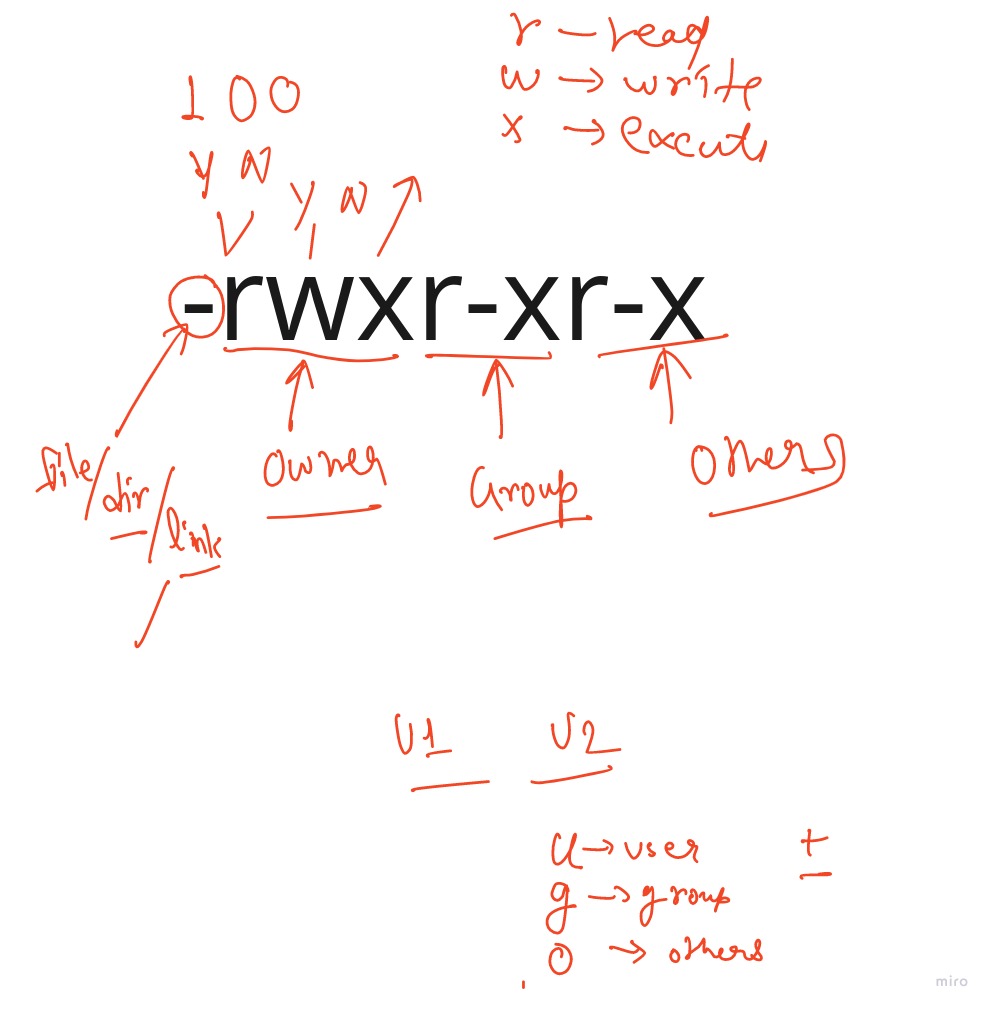 r — read
w → write
x → execute
1 0 0
Y N
Y N
-rwxr-xr-x
file/dir/link
Owner
Group
Others
U1 U2
u → user +
g → group −
o → others
miro